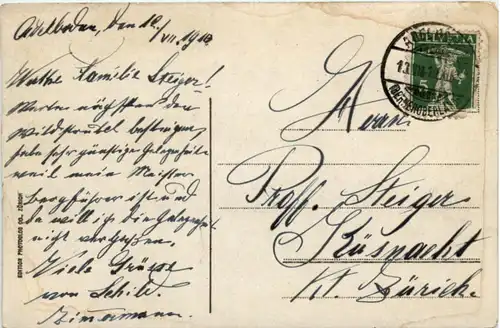 Adelboden, den 12./VII. 1910
Werthe Familie Steiger!
Werte nächstens den
Wildstrubel besteigen
habe sehr günstige Gelegenheit
weil mein Meister
Bergführer ist und
da will ich die Gelegenheit
nicht vergessen.
Viele Grüsse
von Schild.
Zimmermann.
Herrn
Proff. Steiger
Küsnacht
Kt. Zürich.
ADELBODEN
(BERNEROBERLAND)
HELVETIA
EDITION PHOTOGLOB CO. ZÜRICH